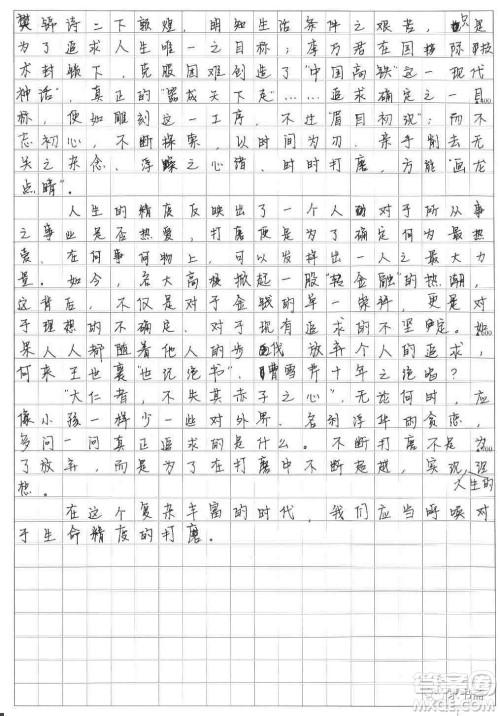 樊锦诗二下敦煌，明知生活条件之艰苦，也只是
为了追求人生唯一之目标；库万君在国际技
术封锁下，克服困难创造了“中国高铁”这一现代
神话”，真正的“器成天下走”……追求确定之一目
标，便如雕刻这一工序，不在“眉目初现”；而不
忘初心，不断探索，以时间为刃，亲手削去无
关之杂念、浮躁之心绪，时时打磨，方能“画龙
点睛”。
人生的精度反映出了一个人对于所从事
之事业是否热爱，打磨便是为了确定何为最热
爱、在何事何物上，可以发挥出一人之最大力
量。如今，各大高校掀起一股“转金融”的热潮，
这背后，不仅是对于金钱的单一崇拜，更是对
于理想的不确定、对于现有追求的不坚定。如
果人人都随着他人的步伐放弃个人的追求，
何来王世襄“世说绝书”、曹雪芹十年之绝唱？
“大仁者，不失其赤子之心”，无论何时，应
像小孩一样少一些对外界、名利浮华的贪恋，
多问一问真正追求的是什么。不断打磨不是为
了放弃，而是为了在打磨中不断超越，实现人生的理
想。
在这个复杂丰富的时代，我们应当呼唤对
于生命精度的打磨。
答案圈
MXQE.COM